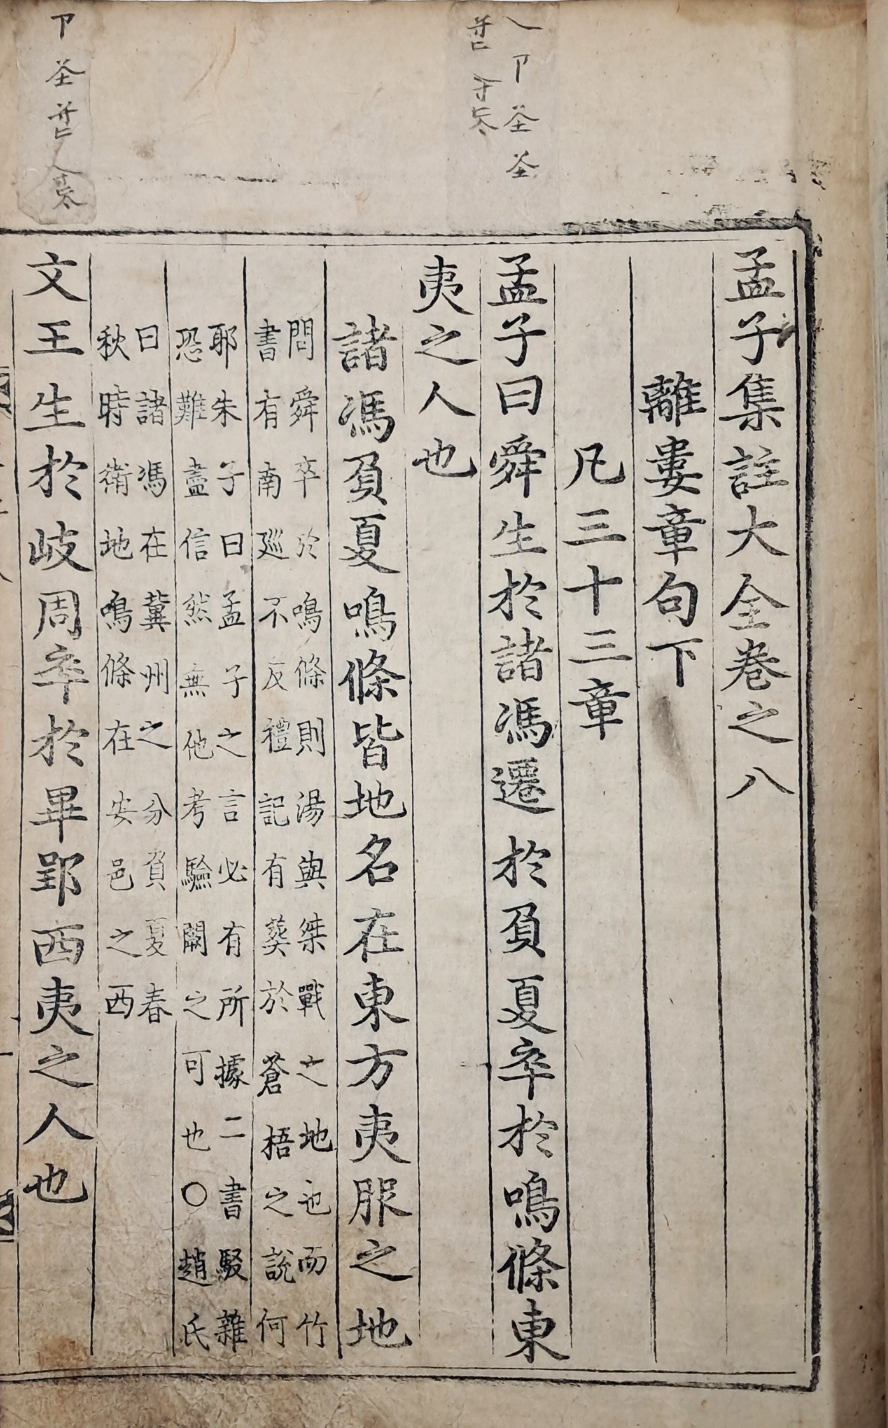 孟子集註大全卷之八
離婁章句下
凡三十三章
孟子曰舜生於諸馮遷於負夏卒於鳴條東
夷之人也
諸馮負夏鳴條皆地名在東方夷服之地
問舜卒於鳴條則湯與桀戰之地也而竹
書有南廵不反禮記有葬於蒼梧之說何
耶朱子曰孟子之言必有所據二書駁雜
恐難盡信然無他考驗闕之可也○趙氏
曰諸馮在冀州之分負夏春
秋時衛地鳴條在安邑之西
文王生於岐周卒於畢郢西夷之人也